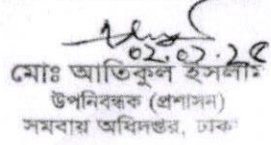 ০২.০২.২৫
মোঃ আতিকুল ইসলাম
উপনিবন্ধক (প্রশাসন)
সমবায় অধিদপ্তর, ঢাকা